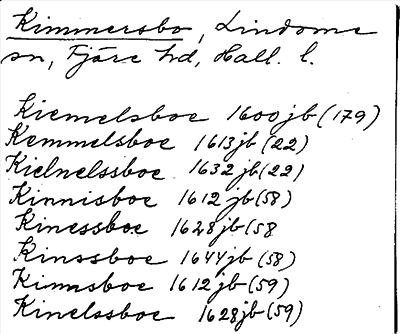 Kimmersbo, Lindome
sn, Fjäre hd, Hall. l.
Kiemelsboe 1600 jb (179)
Kemmelsboe 1613 jb (22)
Kielnelssboe 1632 jb (22)
Kinnisboe 1612 jb (58)
Kinessboe 1628 jb (58
Kinssboe 1644 jb (58)
Kinnsboe 1612 jb (59)
Kinelssboe 1628 jb (59)